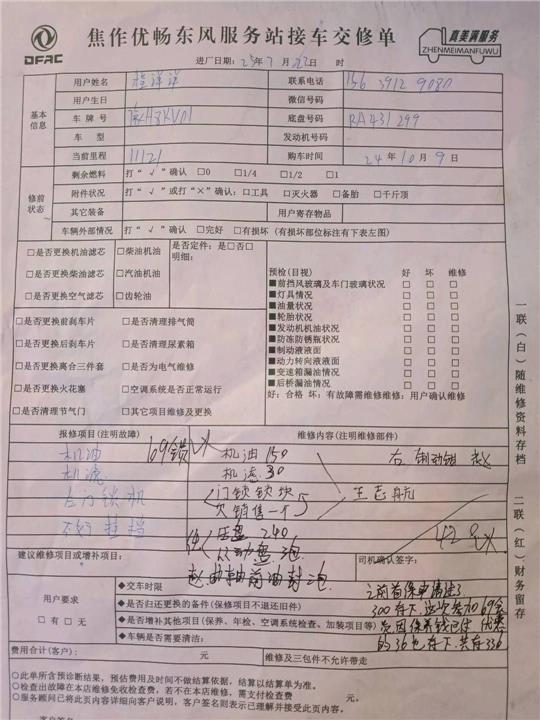 DFAC
焦作优畅东风服务站接车交修单
真美满服务
ZHENMEIMANFUWU
进厂日期: 25年7月22日 时
基本信息
用户姓名 程洋洋 联系电话 156 3912 9080
用户生日 微信号码
车牌号 底盘号码 RA431299
车 型 发动机号码
当前里程 11121 购车时间 24年10月9日
修前状态
剩余燃料 打“√”确认 □0 □1/4 □1/2 □1
附件状况 打“√”或打“×”确认: □工具 □灭火器 □备胎 □千斤顶
其它装备 用户寄存物品
车辆外部情况 打“√”确认 □完好 □有损坏 (有损坏部位标注有下表左图)
□是否更换机油滤芯 □柴油机油
□是否更换柴油滤芯 □汽油机油
□是否更换空气滤芯 □齿轮油
是否定件: 是□否□
明细:
□是否更换前刹车片 □是否清理排气筒
□是否更换后刹车片 □是否清理尿素箱
□是否更换离合三件套 □是否为电气维修
□是否更换火花塞 □空调系统是否正常运行
□是否清理节气门 □其它项目维修及更换
预检(目视) 好 坏 维修
■前挡风玻璃及车门玻璃状况 □ □ □
■灯具情况 □ □ □
■油量状况 □ □ □
■轮胎状况 □ □ □
■发动机机油状况 □ □ □
■防冻防锈瓶状况 □ □ □
■制动液液面 □ □ □
■动力转向液液面 □ □ □
■变速箱漏油情况 □ □ □
■后桥漏油情况 □ □ □
好: 合格 坏: 有故障需维修维修: 用户确认维修
报修项目(注明故障) 维修内容(注明维修部件)
机油 机油 150 右 制动钳 赵
机滤 机滤 30
右门锁机 门锁锁块 王志航
欠销售一个
不好挂挡 压盘 240
从动盘
建议维修项目或增补项目: 司机确认签字:
曲轴前油封
用户要求
□有 □无
◆交车时限
◆是否归还更换的备件(保修项目不退还旧件)
◆是否增补其他项目(保养、年检、空调系统检查、加装项目等)
◆车辆是否需要清洁:
费用合计(客户): 元 维修及三包件不允许带走
○此单所含预诊断结果, 预估费用及时间不做结算依据, 结算以结算单为准。
○检查出故障在本店维修免收检查费, 若不在本店维修, 需支付检查费 元。
○服务顾问已将此页内容详细向客户说明, 客户签名则表示已理解并接受此页内容。
一联(白)随维修资料存档
二联(红)财务留存